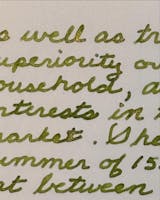 s well as tr
uperiority ov
ousehold, a
nterests in t
market. She
ummer of 15
at between